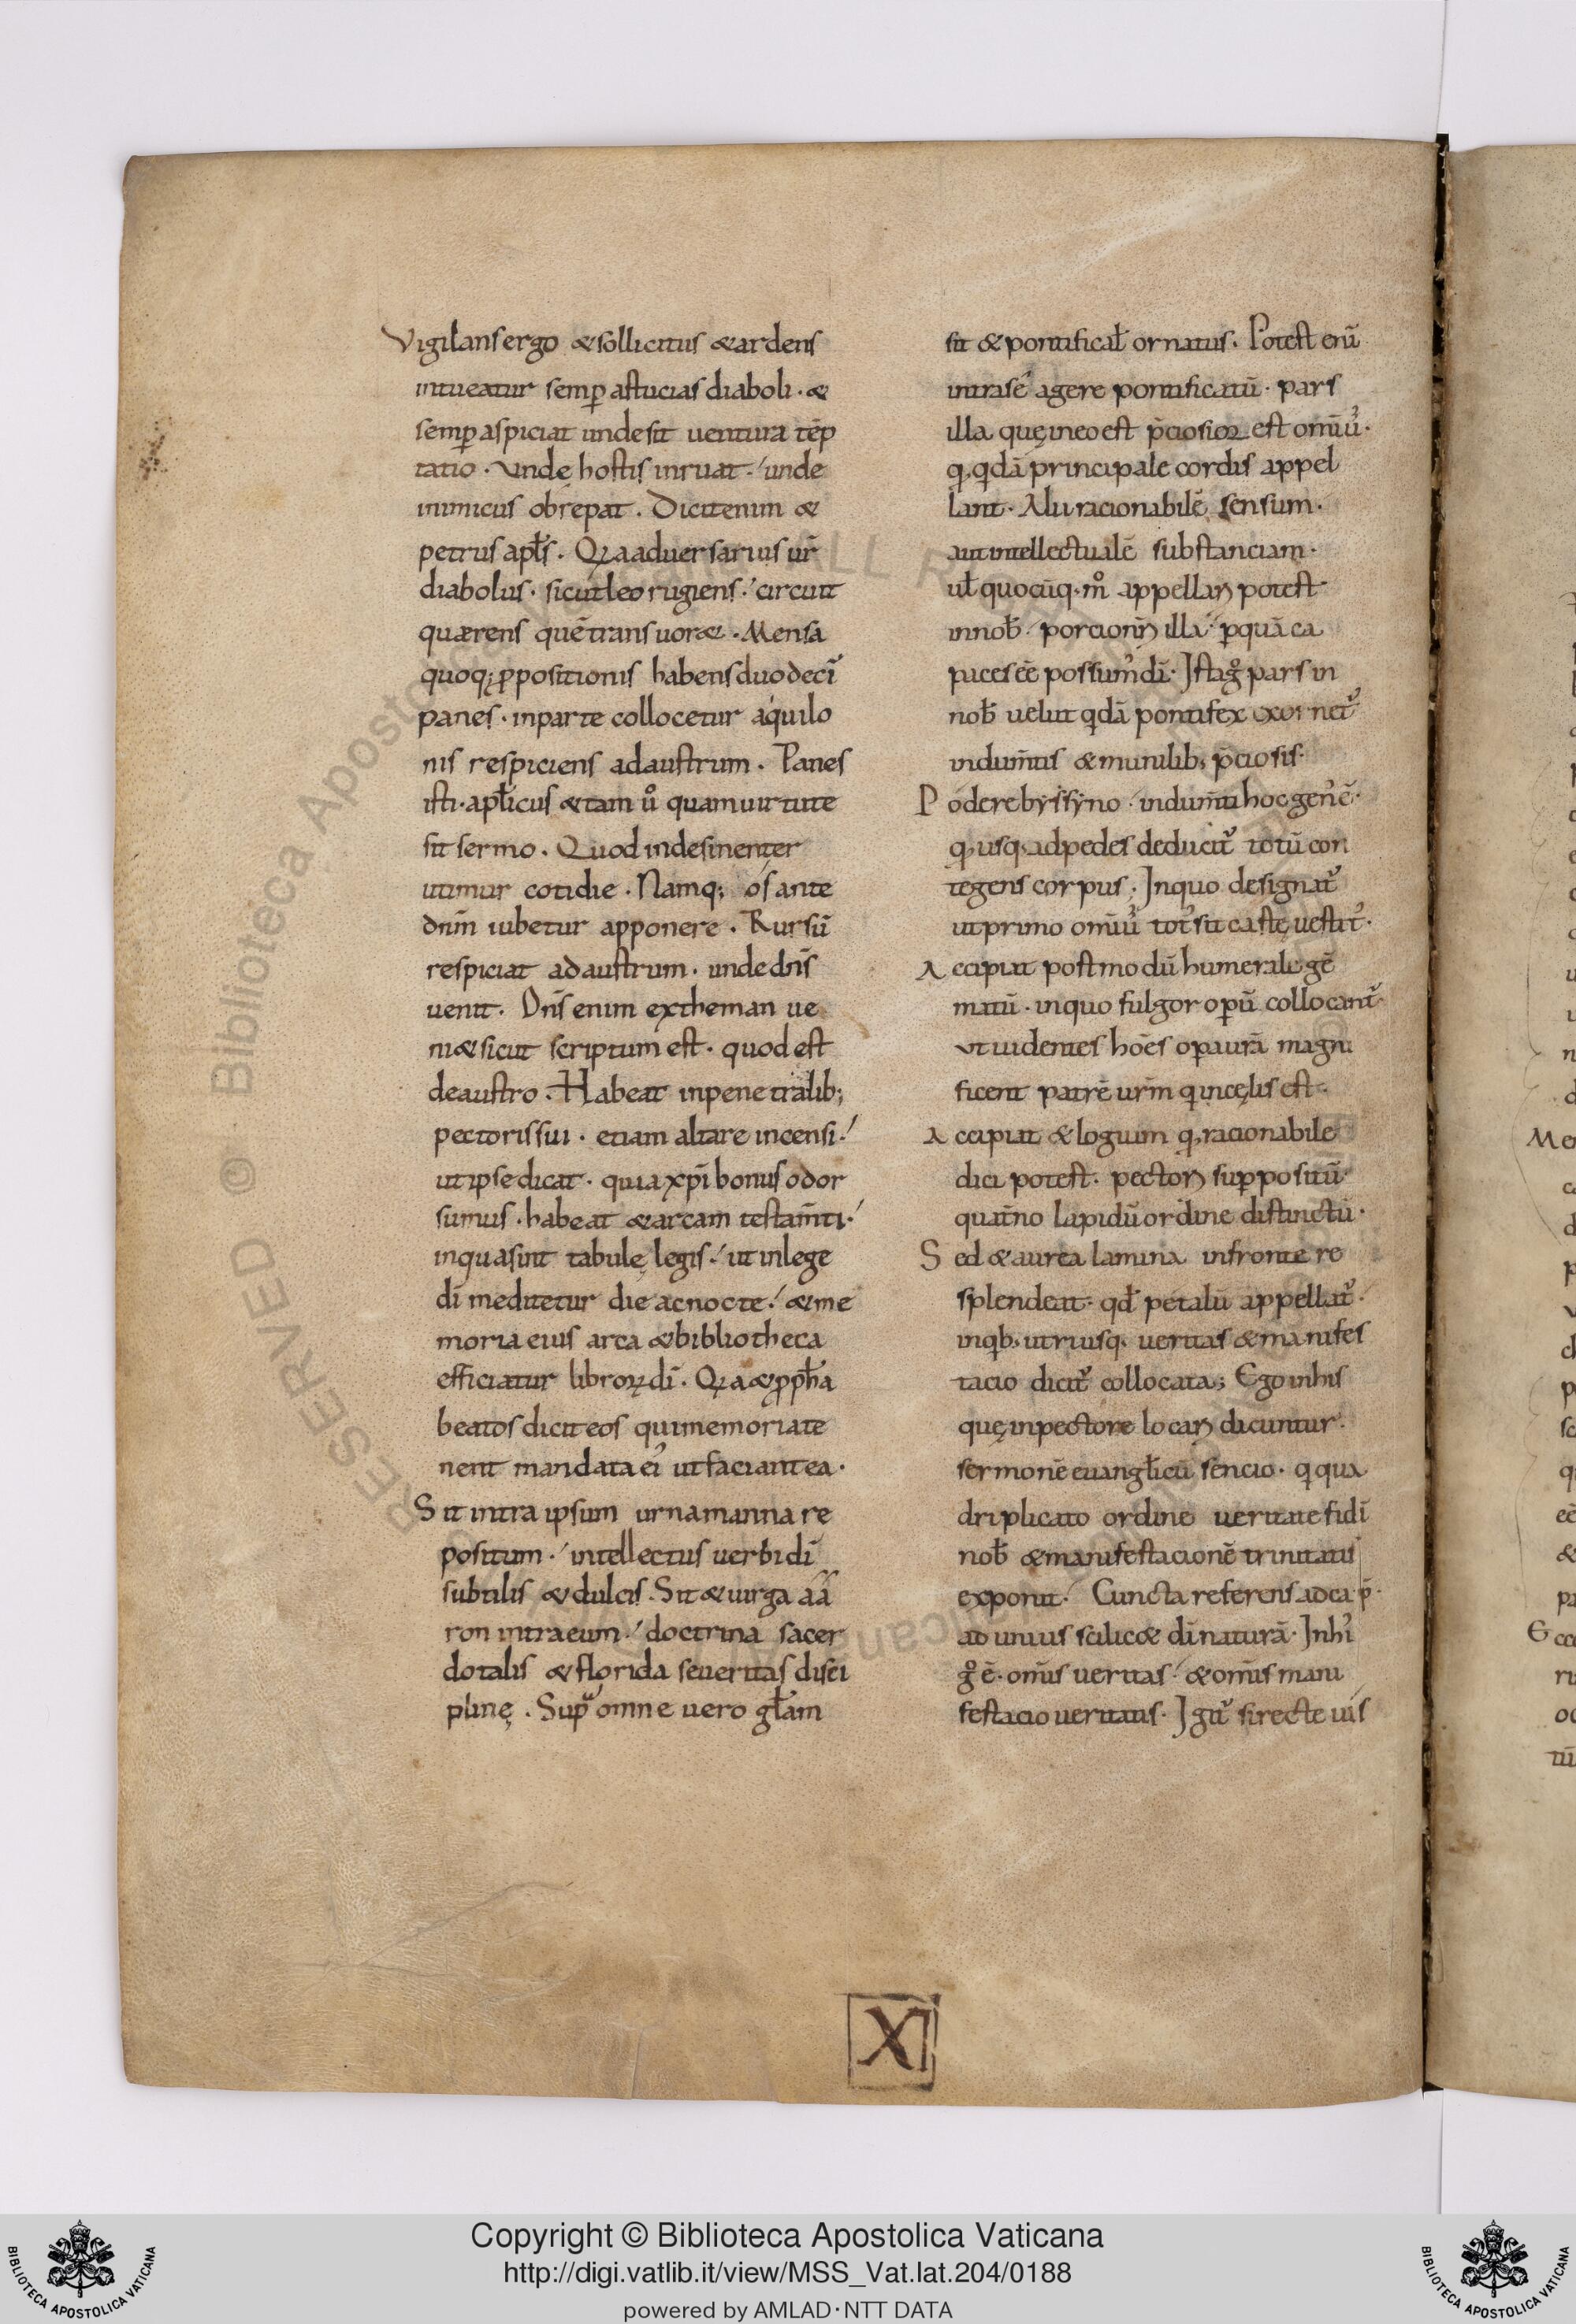 Vigilans ergo & sollicitus & ardens
intueatur semp̄ astucias diaboli · &
semp̄ aspiciat unde sit uentura tēp
tatio · Vnde hostis inruat ·/ unde
inimicus obrepat . Dicit enim &
petrus apl̄s . Qꝛ a aduersarius ur̄
diabolus · sicut leo rugiens ·/ circuit
quærens quē transuor& · Mensa
quoq; ꝓpositionis habens duodecī
panes · in parte collocetur aquilo
nis respiciens ad austrum . Panes
isti · apl̄icus & tam uº quam uirtute
sit sermo . Quod indesinenter
utimur cotidie . Namq; os ante
dnm̄ iubetur apponere . Rursū
respiciat ad austrum · unde dns̄
uenit . Dns̄ enim ex theman ue
ni& sicut scriptum est · quod est
de austro . Habeat in penetralib;
pectoris sui · etiam altare incensi ·/
ut ipse dicat · quia xp̄i bonus odor
sumus · habeat & arcam testam̄ti ·/
in qua sint tabulę legis ·/ ut in lege
dī meditetur die ac nocte ·/ & me
moria eius arca & bibliotheca
efficiatur libroꝝ dī . Qꝛ a & ꝓph̄a
beatos dicit eos qui memoria te
nent mandata ei' ut faciant ea ·
Sit intra ipsum urna manna re
positum ·/ intellectus uerbi dī
subtilis & dulcis . Sit & uirga aa
ron intra eum ·/ doctrina sacer
dotalis & florida seueritas disci
plinę . Sup̄ omne uero gl̄am
sit & pontifical̄ ornatus . Potest enī
intra sé agere pontificatū · pars
illa quę in eo est p̄ciosior est omīu' ·
q, qdā principale cordis appel
lant · Alii racionabilē sensum ·
aut intellectualē substanciam ·
ul̄ quocūq · mº appellaꝝ potest
in nob̄ · porcion illa · p̄ quā ca
paces eē possum' dī · Ista gº pars in
nob̄ uelut qdā pontifex exornet̄
indum̄tis & munilib; p̄ciosis ·
Podere byssyno · indum̄ti hoc gen' ē ·
q, usq; ad pedes deducit̄ totū con
tegens corpus ; In quo designat̄
ut primo omīu' tot' sit castę uestit' ·
Accipiat postmodū humerale gē
matū · in quo fulgor op̄ū collocant̄
Vt uidentes hōes op̄a urā magni
ficent patrē urm̄ q in cęlis est ·
Accipiat & logium q, racionabile
dici potest · pectoꝝ sup̄positū ·
quat̄no lapidū ordine distinctū ·
Sed & aurea lamina in fronte re
splendeat · qd̄ petalū appellat̄ ·
in qb; utriusq; ueritas & manifes
tacio dicit̄ collocata ; Ego in his
quę in pectore locaꝝ dicuntur ·
sermonē euangl̄icū sencio · q qua
driplicato ordine ueritatē fidī
nob̄ & manifestacionē trinitatis
exponit · Cuncta referens ad cap̄ ·
ad unius scilic& dī naturā · In hi'
gº ē · om̄is ueritas · & om̄is mani
festacio ueritatis · Igit̄ si recte uis
XI
Copyright © Biblioteca Apostolica Vaticana
http://digi.vatlib.it/view/MSS_Vat.lat.204/0188
powered by AMLAD·NTT DATA